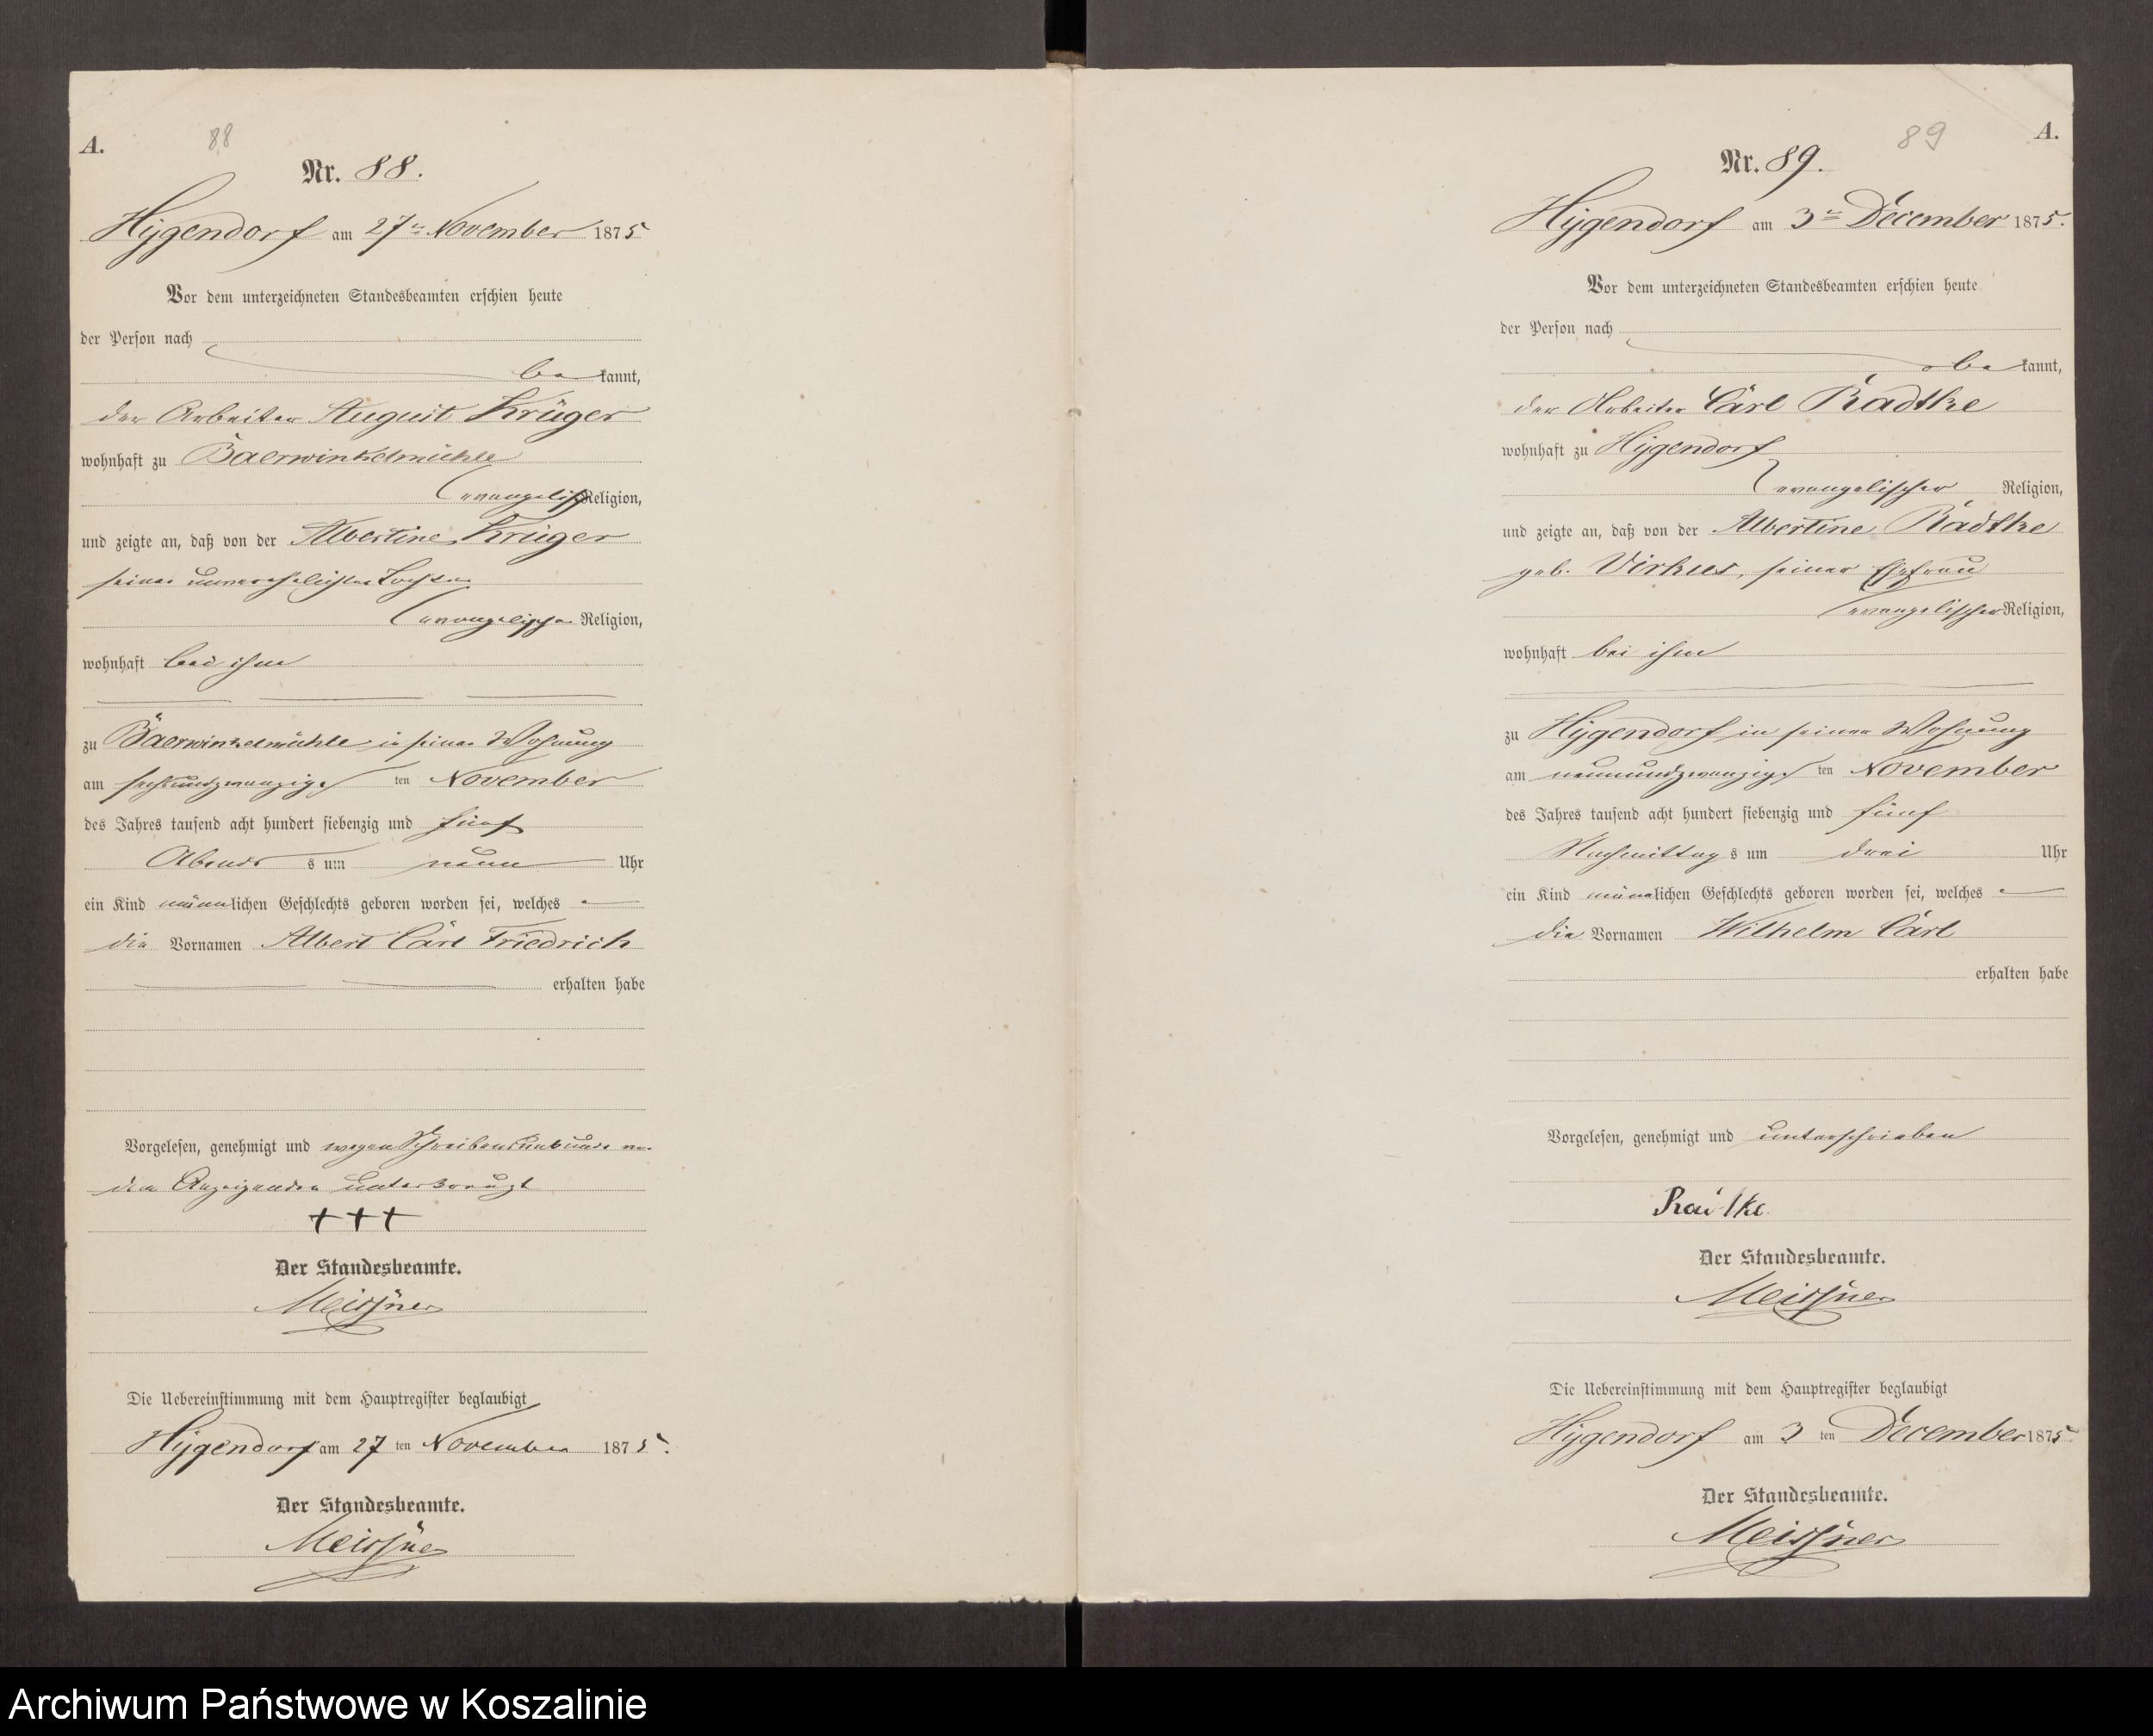 A.
88
Nr. 88.
Hygendorf am 27ten November 1875
Vor dem unterzeichneten Standesbeamten erschien heute
der Person nach
bekannt,
der Arbeiter August Krüger
wohnhaft zu Baerwinkelmühle
evangelisch Religion,
und zeigte an, daß von der Albertine Krüger
seiner unverehelichten Tochter
evangelischer Religion,
wohnhaft bei ihm
zu Baerwinkelmühle in seiner Wohnung
am sechsundzwanzigsten November
des Jahres tausend acht hundert siebenzig und fünf
Abends um neun Uhr
ein Kind männlichen Geschlechts geboren worden sei, welches
die Vornamen Albert Carl Friedrich
erhalten habe
Vorgelesen, genehmigt und wegen Schreibensunkunde von
dem Anzeigenden unterkreuzt
+++
Der Standesbeamte.
Meissner
Die Uebereinstimmung mit dem Hauptregister beglaubigt
Hygendorf am 27ten November 1875.
Der Standesbeamte.
Meissner
A.
89
Nr. 89.
Hygendorf am 3ten December 1875.
Vor dem unterzeichneten Standesbeamten erschien heute
der Person nach
bekannt,
der Arbeiter Carl Radtke
wohnhaft zu Hygendorf
evangelischer Religion,
und zeigte an, daß von der Albertine Radtke
geb. Virkus, seiner Ehefrau
evangelischer Religion,
wohnhaft bei ihm
zu Hygendorf in seiner Wohnung
am neunundzwanzigsten November
des Jahres tausend acht hundert siebenzig und fünf
Nachmittags um drei Uhr
ein Kind männlichen Geschlechts geboren worden sei, welches
die Vornamen Wilhelm Carl
erhalten habe
Vorgelesen, genehmigt und unterschrieben
Radtke
Der Standesbeamte.
Meissner
Die Uebereinstimmung mit dem Hauptregister beglaubigt
Hygendorf am 3ten December 1875
Der Standesbeamte.
Meissner
Archiwum Państwowe w Koszalinie